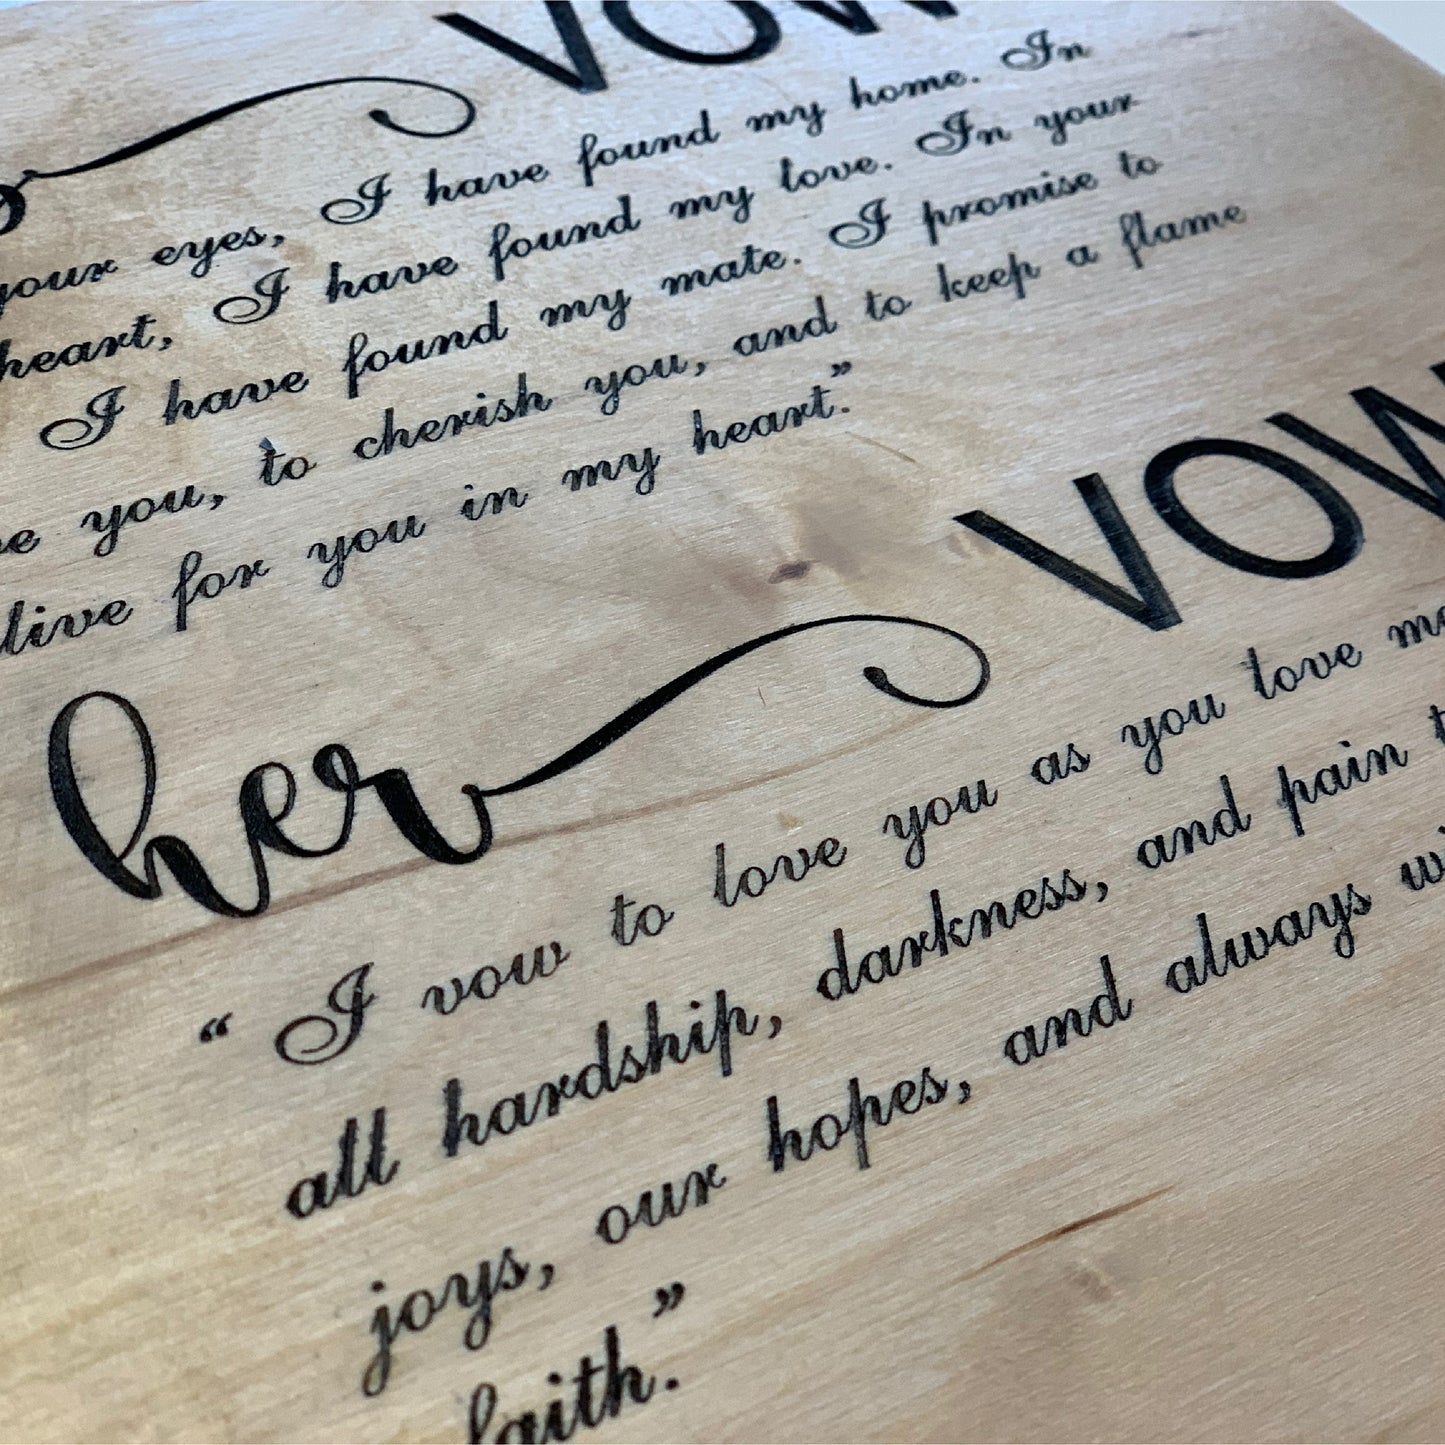 VOW
your eyes, I have found my home. In
heart, I have found my love. In your
I have found my mate. I promise to
you, to cherish you, and to keep a flame
alive for you in my heart."
her VOW
" I vow to love you as you love
all hardship, darkness, and pain
joys, our hopes, and always
faith."